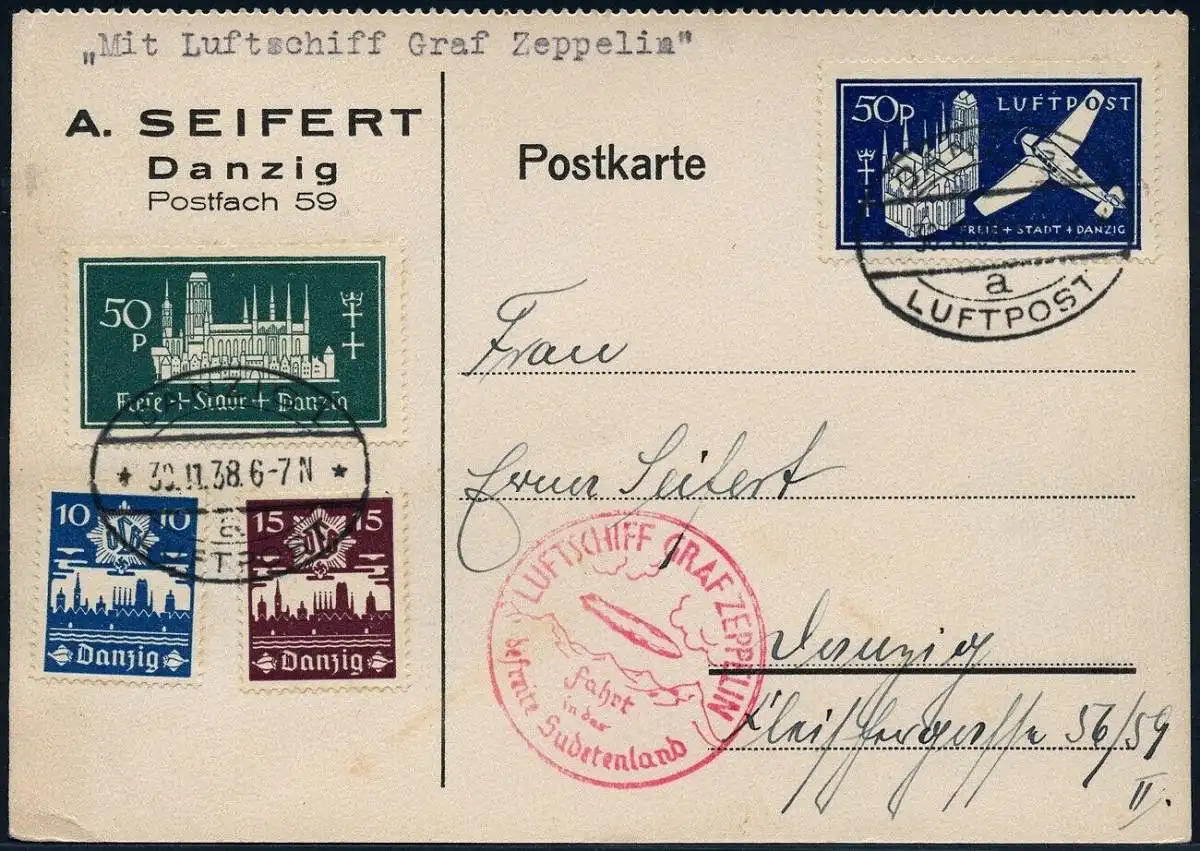 „Mit Luftschiff Graf Zeppelin"
A. SEIFERT
Danzig
Postfach 59
Postkarte
50P LUFTPOST
FREIE + STADT + DANZIG
30.11.3
a
LUFTPOST
50 P
Freie + Stadt + Danzig
DANZIG 1
* 30.11.38.6-7N *
a
LUFTPOST
10 10
Danzig
15 15
Danzig
Frau
Erna Seifert
Danzig
Fleischergasse 56/59
II.
LUFTSCHIFF GRAF ZEPPELIN
Fahrt
in das
befreite Sudetenland